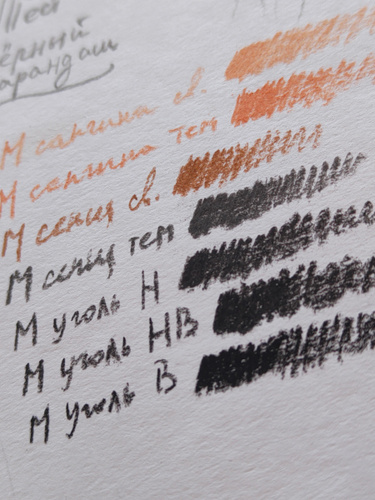 ёрный
арандаш
М сангина св.
М сангина тем
М сепия св.
М сепия тем
М уголь H
М уголь HB
М уголь B